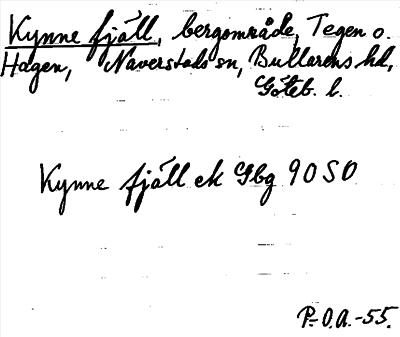 Kynne fjäll, bergområde, Tegen o.
Hagen, Naverstads sn, Bullarens hd,
Göteb. l.
Kynne fjäll ek Gbg 90 SO
P.-O.A.-55.